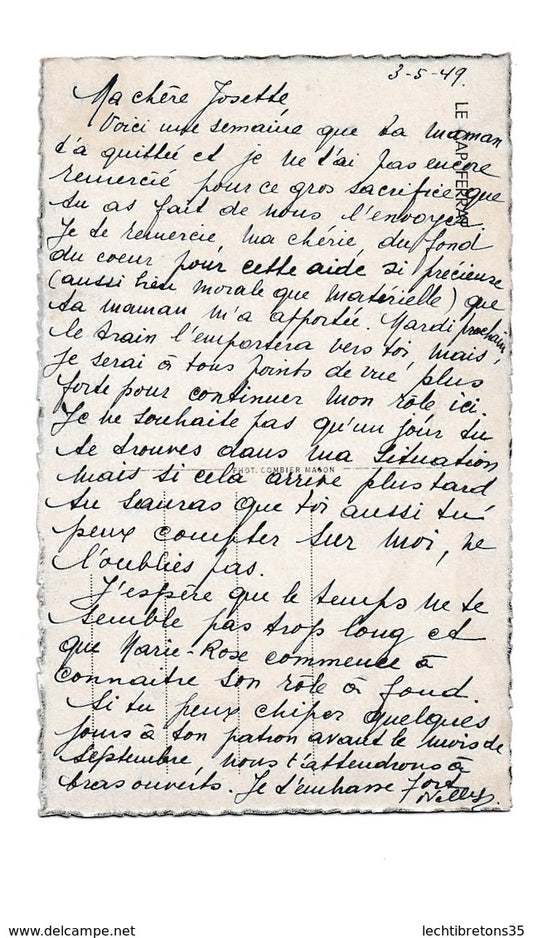 3-5-49.
Ma chère Josette,
Voici une semaine que ta maman
t'a quittée et je ne t'ai pas encore
remercié pour ce gros sacrifice que
tu as fait de nous l'envoyer.
Je te remercie, ma chérie, du fond
du coeur pour cette aide si précieuse
(aussi bien morale que matérielle) que
ta maman m'a apportée. Mardi prochain,
le train l'emportera vers toi, mais,
je serai à tous points de vue, plus
forte pour continuer mon rôle ici.
Je ne souhaite pas qu'un jour tu
te trouves dans ma situation
mais si cela arrive plus tard
tu sauras que toi aussi tu
peux compter sur moi, ne
l'oublies pas.
J'espère que le temps ne te
semble pas trop long et
que Marie-Rose commence à
connaitre son rôle à fond.
Si tu peux chiper quelques
jours à ton patron avant le mois de
Septembre, nous t'attendrons à
bras ouverts. Je t'embrasse fort
Nelly.
LE CAP FERRAT
PHOT. COMBIER MACON
delcampe.net
lechtibretons35